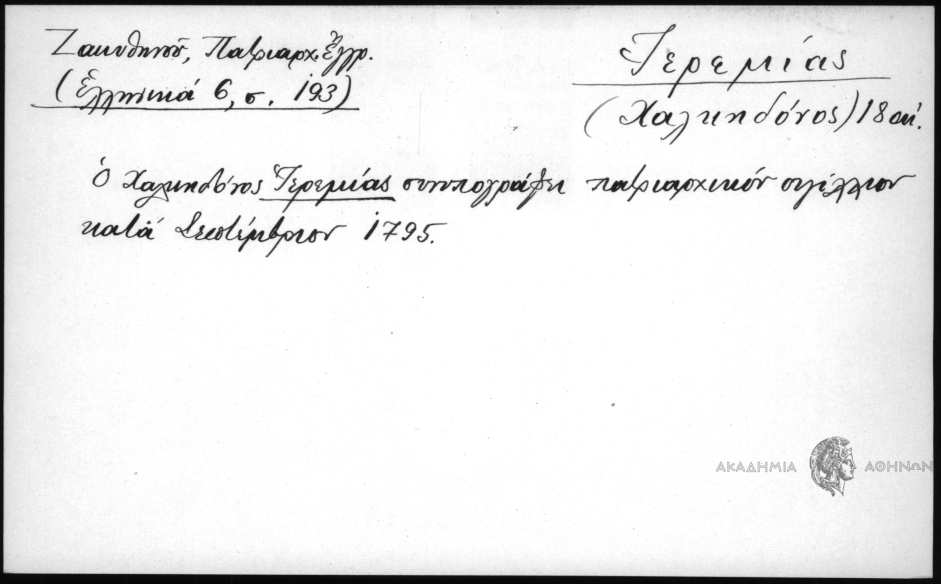 Ζακυθηνοῦ, Πατριαρχ. Ἔγγρ.
(Ἑλληνικά 6, σ. 193)
Ἱερεμίας
(Χαλκηδόνος) 18 αἰ.
Ὁ Χαλκηδόνος Ἱερεμίας συνυπογράφει πατριαρχικόν σιγίλλιον
κατά Σεπτέμβριον 1795.
ΑΚΑΔΗΜΙΑ ΑΘΗΝΩΝ